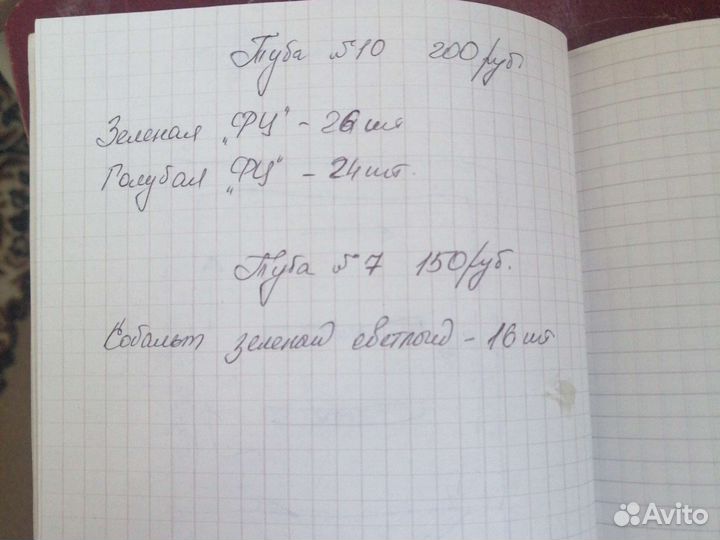 Туба №10 200 руб.
Зеленая „ФЦ" - 26 шт
Голубая „ФЦ" - 24 шт.
Туба №7 150 руб.
Кобальт зеленый светлый - 16 шт
Avito